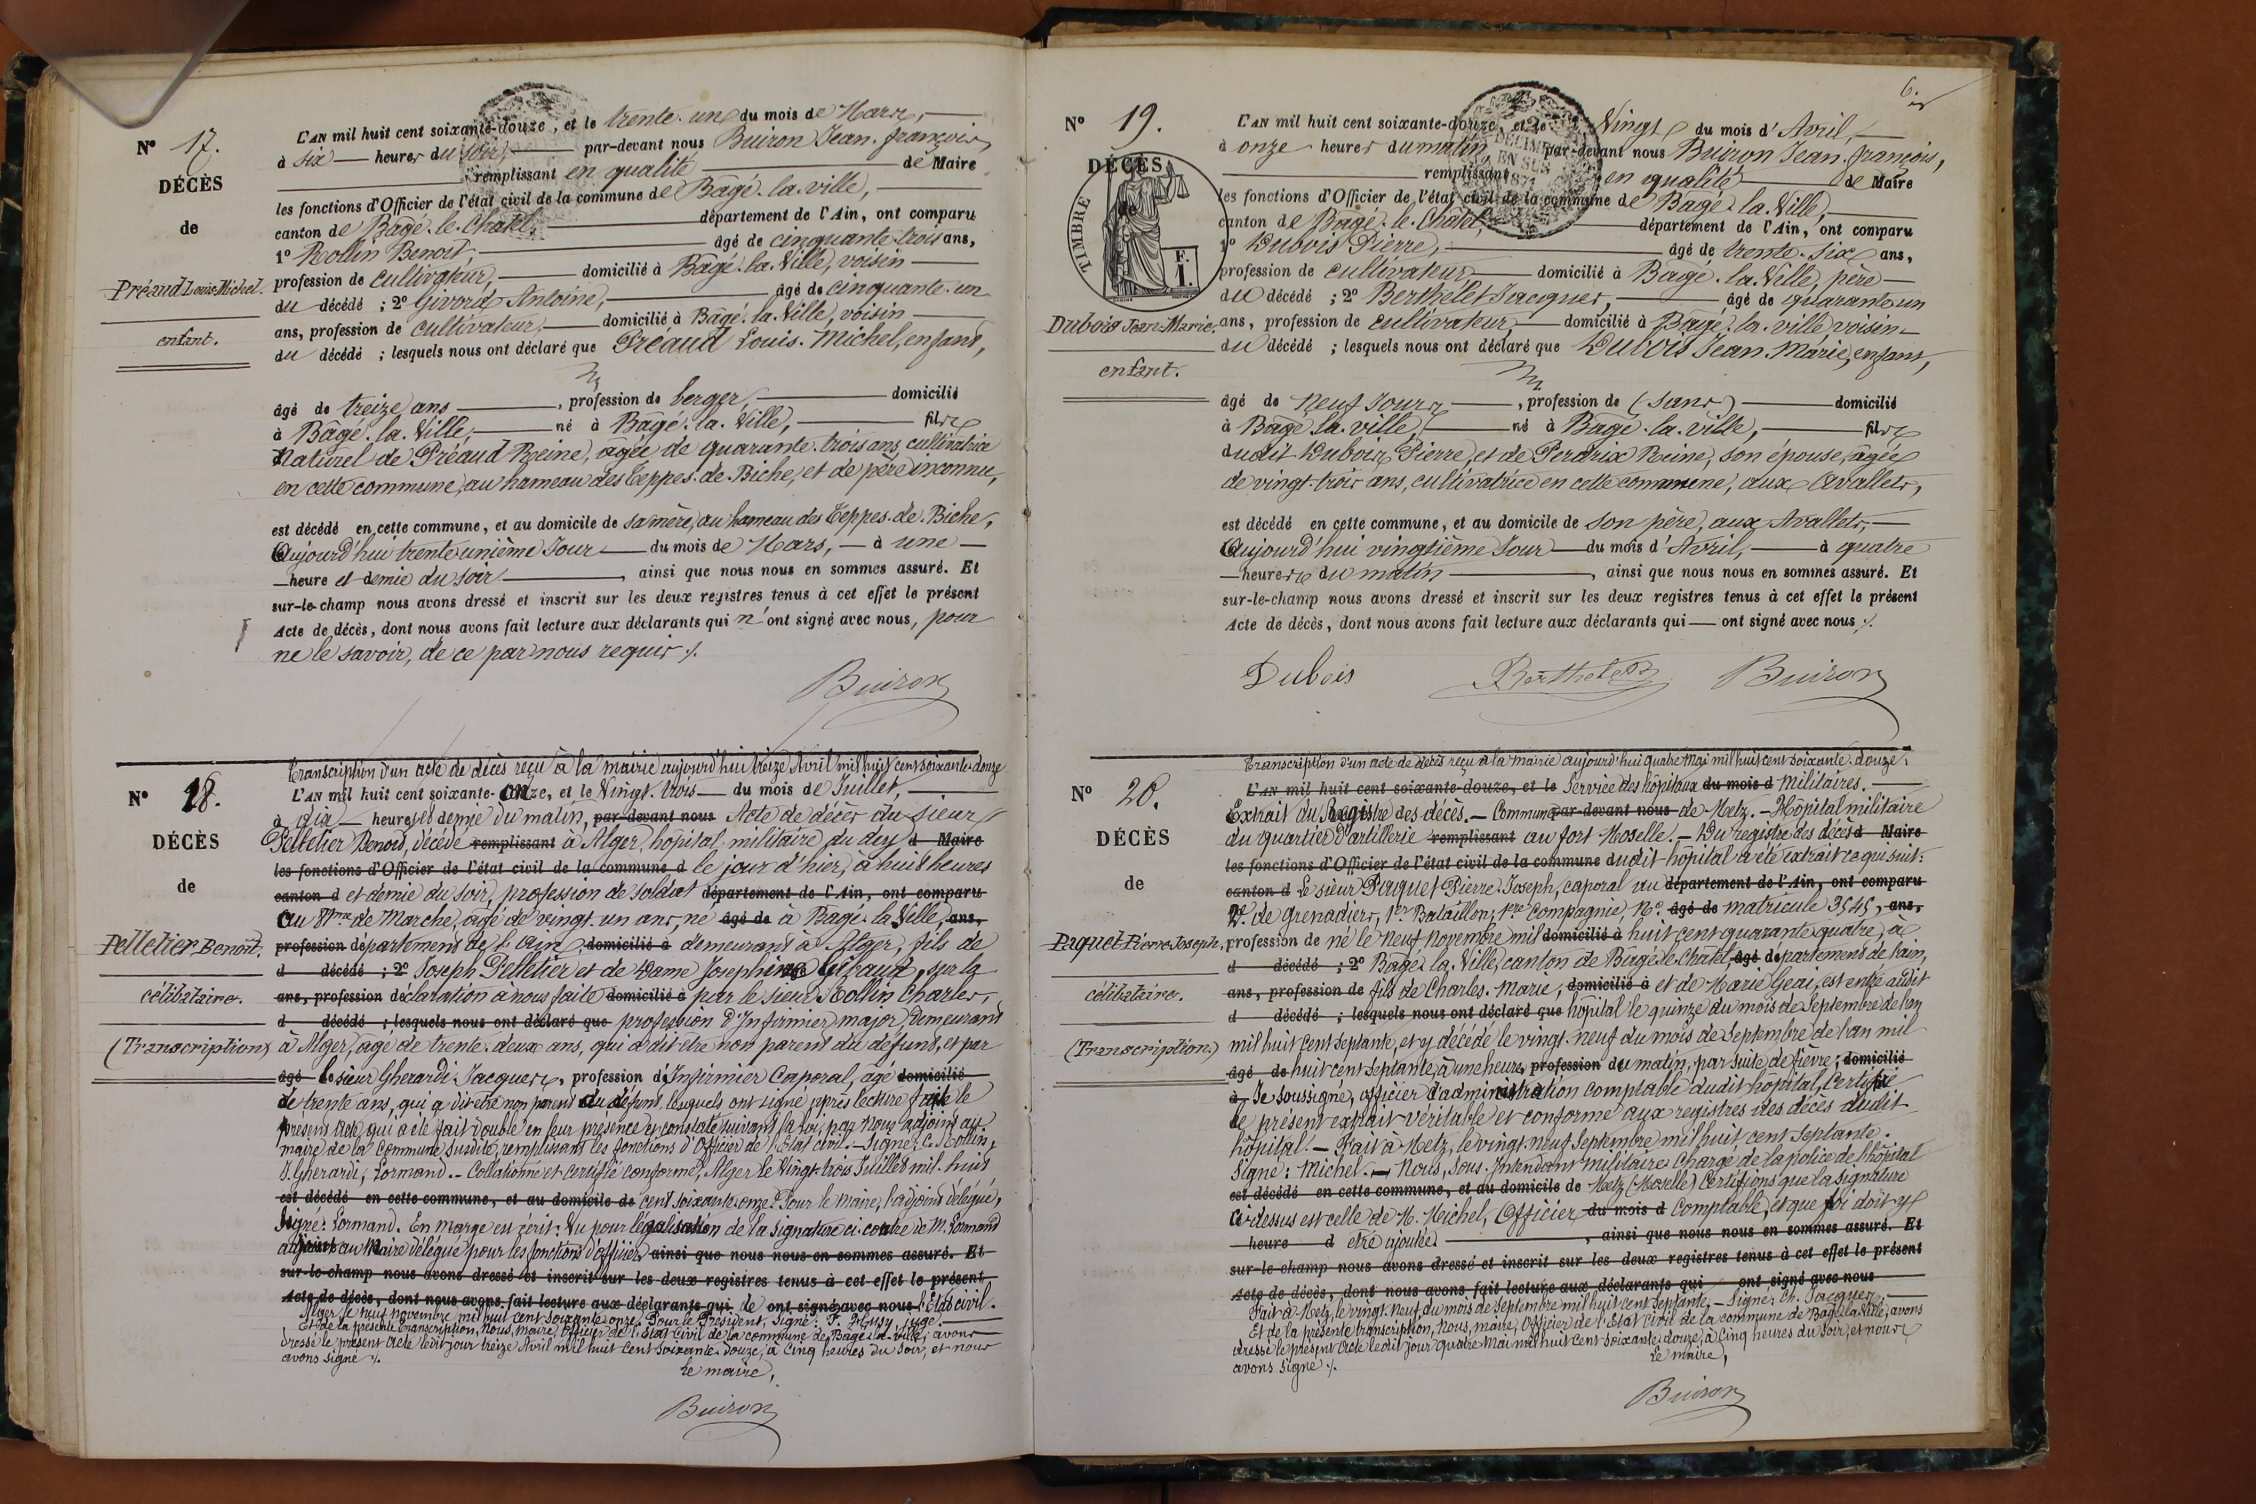 N° 17.
DÉCÈS
de
Préaud Louis-Michel.
enfant.
L'AN mil huit cent soixante-douze, et le trente-un du mois de Mars,
à six heures du soir, par-devant nous Buiron Jean-françois,
remplissant en qualité de Maire
les fonctions d'Officier de l'état civil de la commune de Bâgé-la-ville,
canton de Bâgé-le-Chatel, département de l'Ain, ont comparu
1° Rollin Benoit, âgé de cinquante-trois ans,
profession de cultivateur, domicilié à Bâgé-la-Ville, voisin
du décédé ; 2° Givord Antoine, âgé de cinquante-un
ans, profession de cultivateur, domicilié à Bâgé-la-Ville, voisin
du décédé ; lesquels nous ont déclaré que Préaud Louis-Michel, enfant,
âgé de treize ans, profession de berger, domicilié
à Bâgé-la-Ville, né à Bâgé-la-Ville, fils
naturel de Préaud Reine, âgée de quarante-trois ans, cultivatrice
en cette commune, au hameau des Teppes-de-Biche, et de père inconnu,
est décédé en cette commune, et au domicile de sa mère, au hameau des Teppes-de-Biche,
Aujourd'hui trente-unième Jour du mois de Mars, à une
heure et demie du soir, ainsi que nous nous en sommes assuré. Et
sur-le-champ nous avons dressé et inscrit sur les deux registres tenus à cet effet le présent
Acte de décès, dont nous avons fait lecture aux déclarants qui n'ont signé avec nous, pour
ne le savoir, de ce par nous requis ./.
Buiron
N° 18.
DÉCÈS
de
Pelletier Benoît.
célibataire.
(Transcription)
Transcription d'un acte de décès reçu à la mairie aujourd'hui treize Avril mil huit cent soixante-douze
L'AN mil huit cent soixante-onze, et le Vingt-trois du mois de Juillet,
à dix heures et demie du matin, par-devant nous Acte de décès du sieur
Pelletier Benoit, décédé remplissant à Alger, hôpital militaire du dey d Maire
les fonctions d'Officier de l'état civil de la commune d le jour d'hier, à huit heures
canton d et demie du soir, profession de soldat département de l'Ain, ont comparu
au 8me de Marche, âgé de vingt-un ans, né âgé de à Bâgé-la-Ville, ans,
profession département de l'ain, domicilié à demeurant à Alger, fils de
d décédé ; 2° Joseph Pelletier et de Dame Josephine Gibaud, sur la
ans, profession déclaration à nous faite domicilié à par le sieur Rollin Charles,
d décédé ; lesquels nous ont déclaré que profession d'Infirmier major, demeurant
à Alger, âgé de trente-deux ans, qui a dit être non parent du défunt, et par
âgé le sieur Gherardi Jacques, profession d'Infirmier Caporal, âgé domicilié
de trente ans, qui a dit être non parent du défunt, lesquels ont signé après lecture faite le
présent Acte, qui a été fait double en leur présence et constaté suivant la loi, par Nous adjoint au
maire de la Commune susdite, remplissant les fonctions d'Officier de l'Etat civil. — Signé: C. Rollin,
J. Gherardi, Lormand. — Collationné et certifié conforme, Alger le Vingt-trois Juillet mil-huit
est décédé en cette commune, et au domicile de cent soixante-onze. Pour le maire, l'adjoint délégué,
Signé: Lormand. En marge est écrit: Vu pour légalisation de la signature ci-contre de M. Lormand
adjoint au Maire délégué pour les fonctions d'officier ainsi que nous nous en sommes assuré. Et
sur-le-champ nous avons dressé et inscrit sur les deux registres tenus à cet effet le présent
Acte de décès, dont nous avons fait lecture aux déclarants qui de ont signé avec nous l'Etat civil.
Alger, le huit novembre mil huit cent soixante-onze. Pour le Président, Signé: F. Husy, juge.
Et de la présente transcription, Nous, maire, Officier de l'Etat Civil de la commune de Bâgé-la-ville, avons
dressé le présent Acte ledit jour treize Avril mil huit cent soixante-douze, à Cinq heures du Soir, et nous
avons Signé ./.
Le maire,
Buiron
6.
N° 19.
DÉCÈS
TIMBRE
F.
1.
DÉCIME
EN SUS
1871
Dubois Jean-Marie.
enfant.
L'AN mil huit cent soixante-douze, et le Vingt du mois d'Avril,
à onze heures du matin, par-devant nous Buiron Jean-françois,
remplissant en qualité de Maire
les fonctions d'Officier de l'état civil de la commune de Bâgé-la-Ville,
canton de Bâgé-le-Châtel, département de l'Ain, ont comparu
1° Dubois Pierre, âgé de trente-six ans,
profession de cultivateur, domicilié à Bâgé-la-Ville, père
du décédé ; 2° Berthelet Jacques, âgé de quarante-un
ans, profession de cultivateur, domicilié à Bâgé-la-ville voisin
du décédé ; lesquels nous ont déclaré que Dubois Jean-Marie, enfant,
âgé de neuf Jours, profession de (sans) domicilié
à Bâgé-la-ville, né à Bâgé-la-ville, fils
dudit Dubois Pierre, et de Perdrix Reine, son épouse, âgée
de vingt-trois ans, cultivatrice en cette commune, aux Avallets,
est décédé en cette commune, et au domicile de son père, aux Avallets,
Aujourd'hui vingtième Jour du mois d'Avril, à quatre
heures du matin, ainsi que nous nous en sommes assuré. Et
sur-le-champ nous avons dressé et inscrit sur les deux registres tenus à cet effet le présent
Acte de décès, dont nous avons fait lecture aux déclarants qui ont signé avec nous ./.
Dubois Berthelet Buiron
N° 20.
DÉCÈS
de
Paquet Pierre-Joseph,
célibataire.
(Transcription)
Transcription d'un acte de décès reçu à la mairie aujourd'hui quatre Mai mil huit cent soixante-douze.
L'AN mil huit cent soixante-douze, et le Service des hôpitaux du mois d militaires.
Extrait du Registre des décès. — Commune par-devant nous de Metz. — Hôpital militaire
du quartier d'artillerie remplissant au fort Moselle. — Du registre des décès d Maire
les fonctions d'Officier de l'état civil de la commune dudit hôpital a été extrait ce qui suit:
canton d Le sieur Paquet Pierre-Joseph, caporal au département de l'Ain, ont comparu
2e de grenadiers, 1er Bataillon, 1re Compagnie, N° âgé de matricule 3545, ans,
profession de né le neuf novembre mil domicilié à huit cent quarante-quatre, à
d décédé ; 2° Bâgé-la-Ville, canton de Bâgé-le-Châtel, âgé département de l'ain,
ans, profession de fils de Charles-Marie, domicilié à et de Marie Geai, est entré audit
d décédé ; lesquels nous ont déclaré que hôpital le quinze du mois de Septembre de l'an
mil huit cent septante, et y décédé le vingt-neuf du mois de Septembre de l'an mil
âgé de huit cent septante, à une heure, profession du matin, par suite de fièvre, domicilié
à Je soussigné, officier d'administration comptable dudit hôpital, Certifie
le présent extrait véritable et conforme aux registres des décès dudit
hôpital. — Fait à Metz, le vingt-neuf Septembre mil huit cent septante.
Signé: Michel. — Nous, Sous-Intendant militaire chargé de la police de l'hôpital
est décédé en cette commune, et au domicile de Metz (Moselle) Certifions que la signature
Ci-dessus est celle de M. Michel, Officier du mois d Comptable, et que foi doit y
heure d être ajoutée, ainsi que nous nous en sommes assuré. Et
sur-le-champ nous avons dressé et inscrit sur les deux registres tenus à cet effet le présent
Acte de décès, dont nous avons fait lecture aux déclarants qui ont signé avec nous
Fait à Metz, le vingt-neuf, du mois de Septembre mil huit cent Septante, — Signé: Ch. Jacques,
Et de la présente transcription, Nous, maire, Officier de l'Etat Civil de la commune de Bâgé-la-Ville, avons
dressé le présent Acte ledit jour quatre Mai mil huit cent soixante-douze, à Cinq heures du Soir, et nous
avons Signé ./.
Le maire,
Buiron